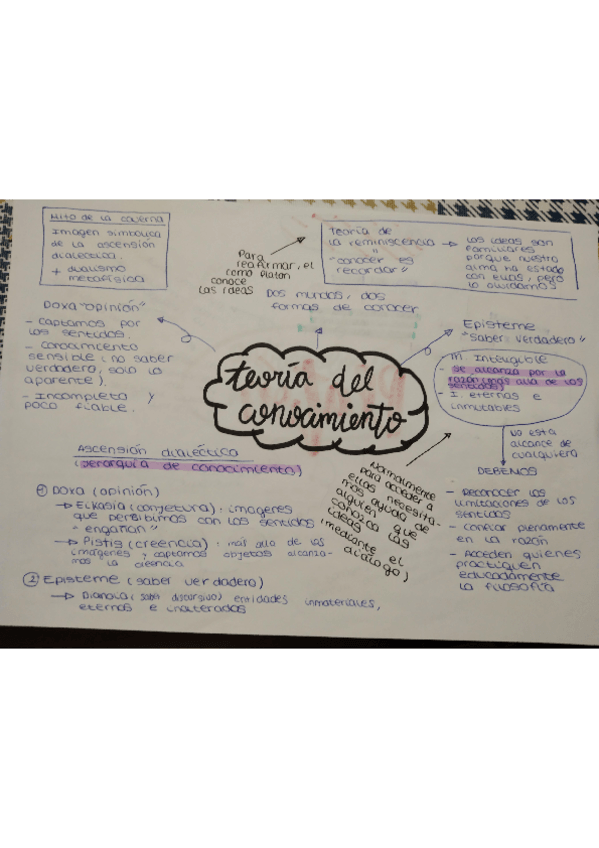 Mito de la caverna
Imagen simbólica
de la ascensión
dialéctica.
+ dualismo
metafísico
Para
reafirmar, el
como Platón
conoce
las ideas
Teoría de
la reminiscencia
"conocer es
recordar"
las ideas son
familiares
porque nuestro
alma ha estado
con ellas, pero
lo olvidamos
Dos mundos, dos
formas de conocer
Doxa "opinión"
- Captamos por
los sentidos.
- Conocimiento
sensible (no saber
verdadero, solo lo
aparente).
- Incompleto y
poco fiable.
Episteme
"Saber verdadero"
M. Inteligible
- se alcanza por la
razón (más allá de los
sentidos)
- I. eternas e
inmutables
teoría del
conocimiento
No está
alcance de
cualquiera
DEBEMOS
- Reconocer las
limitaciones de los
sentidos
- confiar plenamente
en la razón
- Acceden quienes
practiquen
educadamente
la filosofía
Normalmente
para acceder a
ellas necesita-
mos ayuda de
alguien que
conozca las
ideas
(mediante el
diálogo)
Ascensión dialéctica
(jerarquía de conocimiento)
① Doxa (opinión)
→ Eikasia (conjetura): imágenes
que persibimos con los sentidos
- engañan"
→ Pistis (creencia): más allá de las
imágenes y captamos objetos alcanza-
mos la creencia
② Episteme (saber verdadero)
→ Dianoia (saber discursivo) entidades inmateriales,
eternas e inalteradas